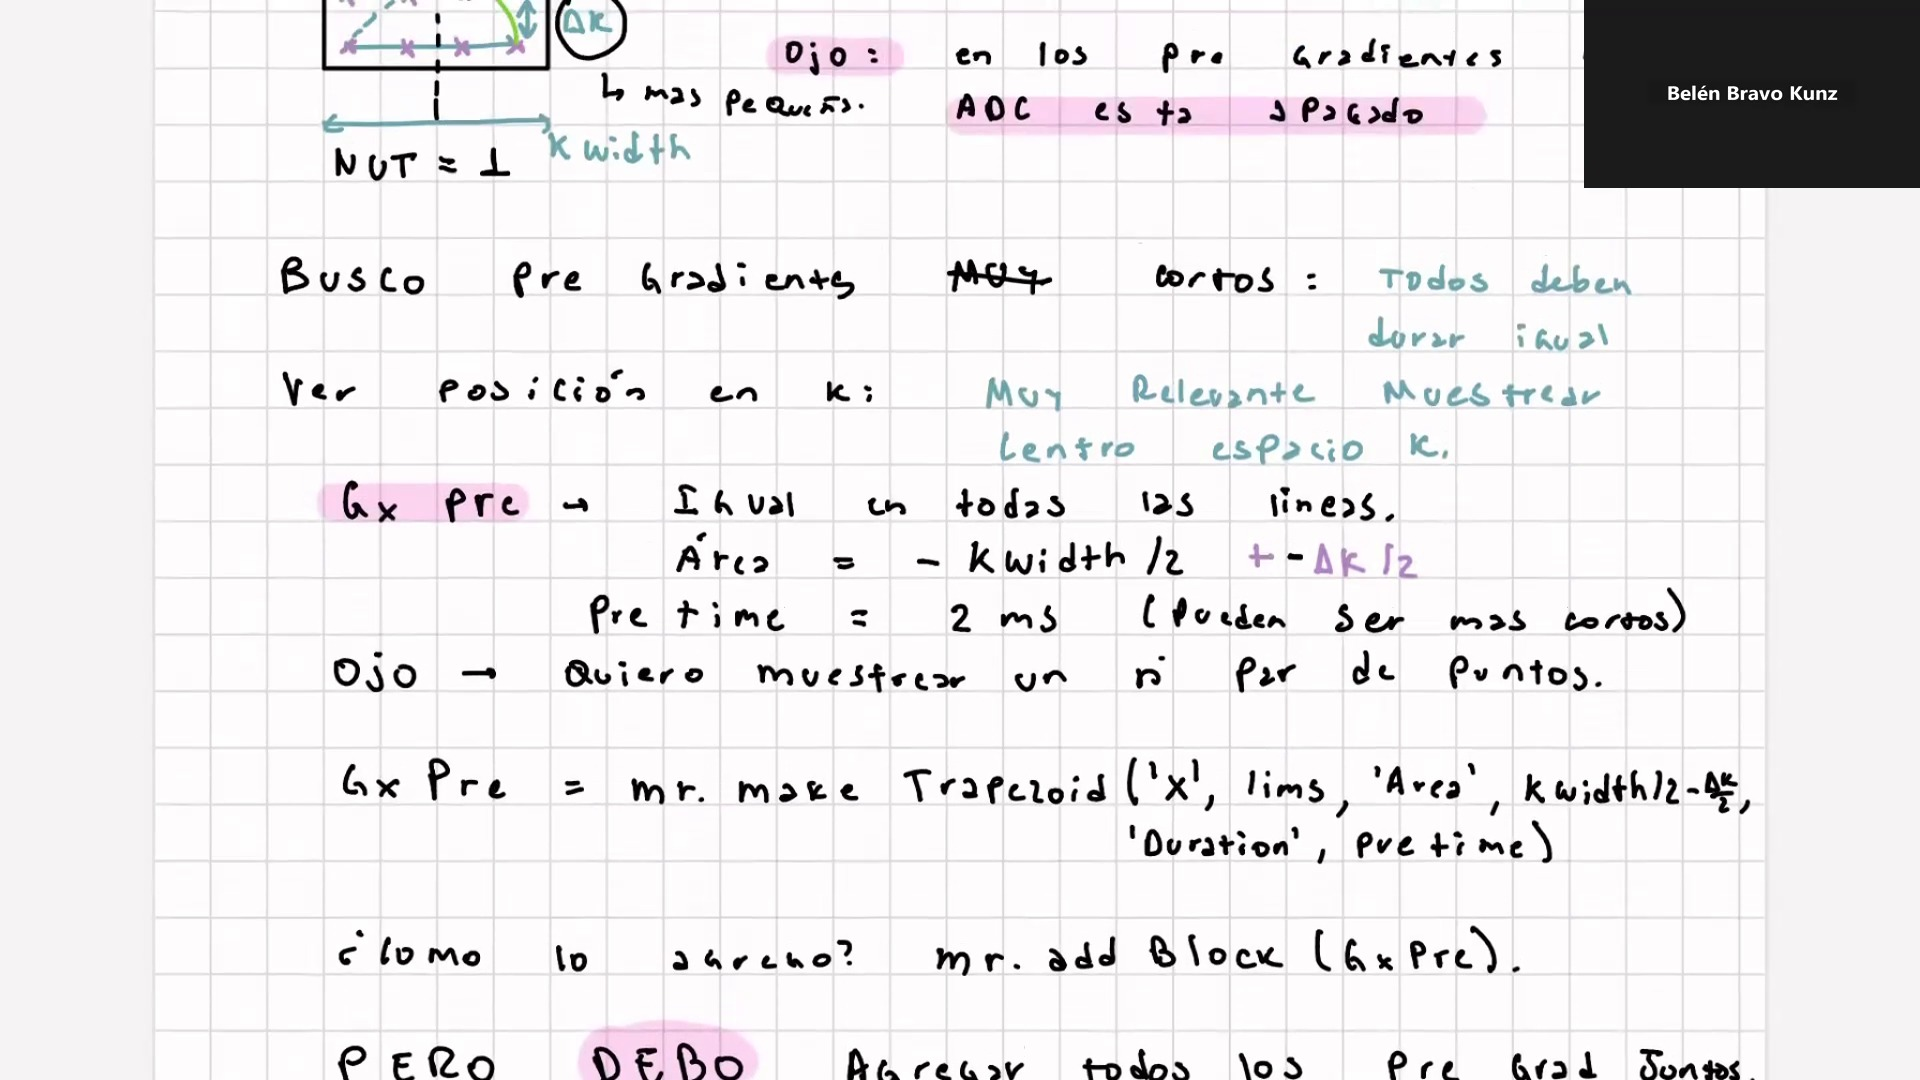 ΔK
Ojo: en los pre Gradientes
ADC esta apagado
↳ mas pequeño.
K width
NUT ≈ 1
Belén Bravo Kunz
Busco pre Gradientes Muy cortos: Todos deben
durar igual
Ver posición en k: Muy Relevante Muestrear
Centro espacio K.
Gx pre → Igual en todas las lineas.
Área = - K width /2 + - ΔK/2
Pre time = 2 ms (Pueden ser mas cortos)
Ojo → Quiero muestrear un n° par de puntos.
Gx Pre = mr. make Trapezoid ('x', lims, 'Area', K width/2 - ΔK/2,
'Duration', pre time)
¿Como lo agrego? mr. add Block (Gx Pre).
PERO DEBO Agregar todos los Pre Grad Juntos.